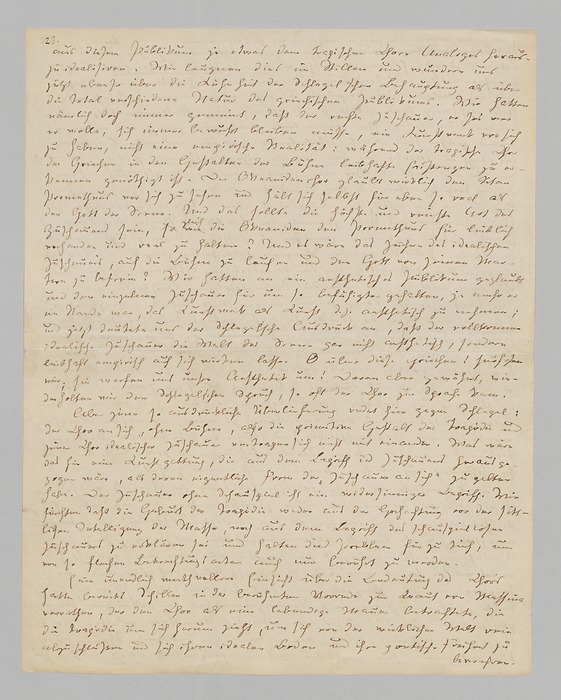 23.
aus diesem Publikum je etwas dem tragischen Chore Analoges heraus-
zuidealisiren. Wir läugnen dies im Stillen und wundern uns
jetzt ebenso über die Kühnheit der Schlegel'schen Behauptung als über
die total verschiedene Natur des griechischen Publikums. Wir hatten
nämlich doch immer gemeint, daß der rechte Zuschauer, er sei wer
er wolle, sich immer bewußt bleiben müsse, ein Kunstwerk vor sich
zu haben, nicht eine empirische Realität: während der tragische Chor
der Griechen in den Gestalten der Bühne leibhafte Existenzen zu er-
kennen genöthigt ist. Der Okeanidenchor glaubt wirklich den Titan
Prometheus vor sich zu sehen und hält sich selbst für eben so real als
den Gott der Scene. Und das sollte die höchste und reinste Art des
Zuschauers sein, die Okeaniden den Prometheus für leiblich
vorhanden und real zu halten? Und es wäre das Zeichen des idealischen
Zuschauers, auf die Bühne zu laufen und den Gott von seinen Mar-
tern zu befreien? Wir hatten an ein aesthetisches Publikum geglaubt
und den einzelnen Zuschauer für um so befähigter gehalten, je mehr er
im Stande war, das Kunstwerk als Kunst d.h. aesthetisch zu nehmen;
und jetzt deutete uns der Schlegelsche Ausdruck an, daß der vollkommne
idealische Zuschauer die Welt der Scene gar nicht aesthetisch, sondern
leibhaft empirisch auf sich wirken lasse. O über diese Griechen! seufzten
wir; sie werfen uns unsre Aesthetik um! Daran aber gewöhnt, wie-
derholten wir den Schlegelschen Spruch, so oft der Chor zur Sprache kam.
Aber jene so ausdrückliche Überlieferung redet hier gegen Schlegel:
der Chor an sich, ohne Bühne, also die primitive Gestalt der Tragödie und
jener Chor idealischer Zuschauer vertragen sich nicht mit einander. Was wäre
das für eine Kunstgattung, die aus dem Begriff des Zuschauers herausge-
zogen wäre, als deren eigentliche Form der „Zuschauer an sich“ zu gelten
habe. Der Zuschauer ohne Schauspiel ist ein widersinniger Begriff. Wir
fürchten daß die Geburt der Tragödie weder aus der Hochachtung vor der sitt-
lichen Intelligenz der Masse, noch aus dem Begriff des schauspiellosen
Zuschauers zu erklären sei und halten dies Problem für zu tief, um
von so flachen Betrachtungsarten auch nur berührt zu werden.
Eine unendlich werthvollere Einsicht über die Bedeutung des Chors
hatte bereits Schiller in der berühmten Vorrede zur Braut von Messina
verrathen, der den Chor als eine lebendige Mauer betrachtete, die
die Tragödie um sich herum zieht, um sich von der wirklichen Welt rein
abzuschließen und sich ihren idealen Boden und ihre poetische Freiheit zu
bewahren.